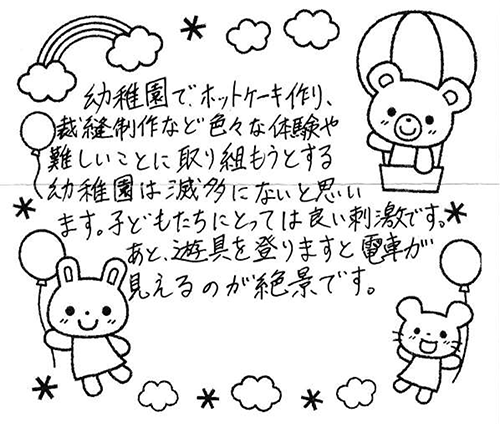 幼稚園で、ホットケーキ作り、
裁縫制作など色々な体験や
難しいことに取り組もうとする
幼稚園は滅多にないと思い
ます。子どもたちにとっては良い刺激です。
あと、遊具を登りますと電車が
見えるのが絶景です。